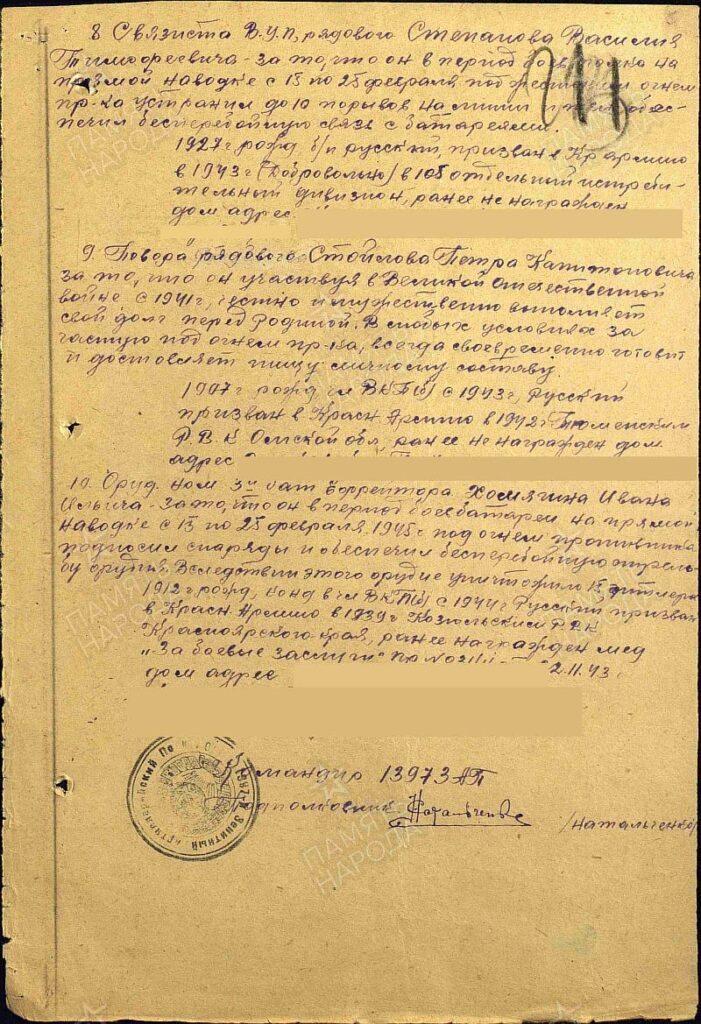 8 Связиста В.У.П, рядового Степанова Василия
Тимофеевича - за то, что он в период боев полка на
прямой наводке с 15 по 25 февраля под огнем
пр-ка устранил до 10 порывов на линии и тем обес-
печил бесперебойную связь с батареями.
1927 г. рожд. б/п русский, призван в Кр. армию
в 1943 г (Добровольно) в 108 отдельный истреби-
тельный дивизион, ранее не награжден
дом адрес
9. Повора рядового Стойлова Петра Капитоновича
за то, что он участвуя в Великой Отечественной
войне с 1941 г, честно и мужественно выполняет
свой долг перед Родиной. В любых условиях за
частую под огнем пр-ка, всегда своевременно готовит
и доставляет пищу личному составу.
1907 г. рожд чл ВКП(б) с 1943 г, Русский
призван в Красн Армию в 1942 г Тюменским
Р.В.К Омской обл, ранее не награжден дом
адрес
10. Оруд. ном. 3й бат ефрейтора Хомягина Ивана
Ильича - За то, что он в период боев батареи на прямой
наводке с 15 по 25 февраля 1945 г под огнем противника
подносил снаряды и обеспечил бесперебойную стрель-
бу орудия. Вследствии этого орудие уничтожило 15 гитлер
1912 г. рожд, канд в чл ВКП(б) с 1944 г Русский призван
в Красн Армию в 1939 г Козульским Р.В.К
Красноярского края, ранее награжден мед
"За боевые заслуги" пр No 2.11.43.
дом адрес
Командир 1397 ЗАП
Подполковник Натальченко /Натальченко/
1397й Зенитный Артиллерийский По
ПАМЯТЬ НАРОДА